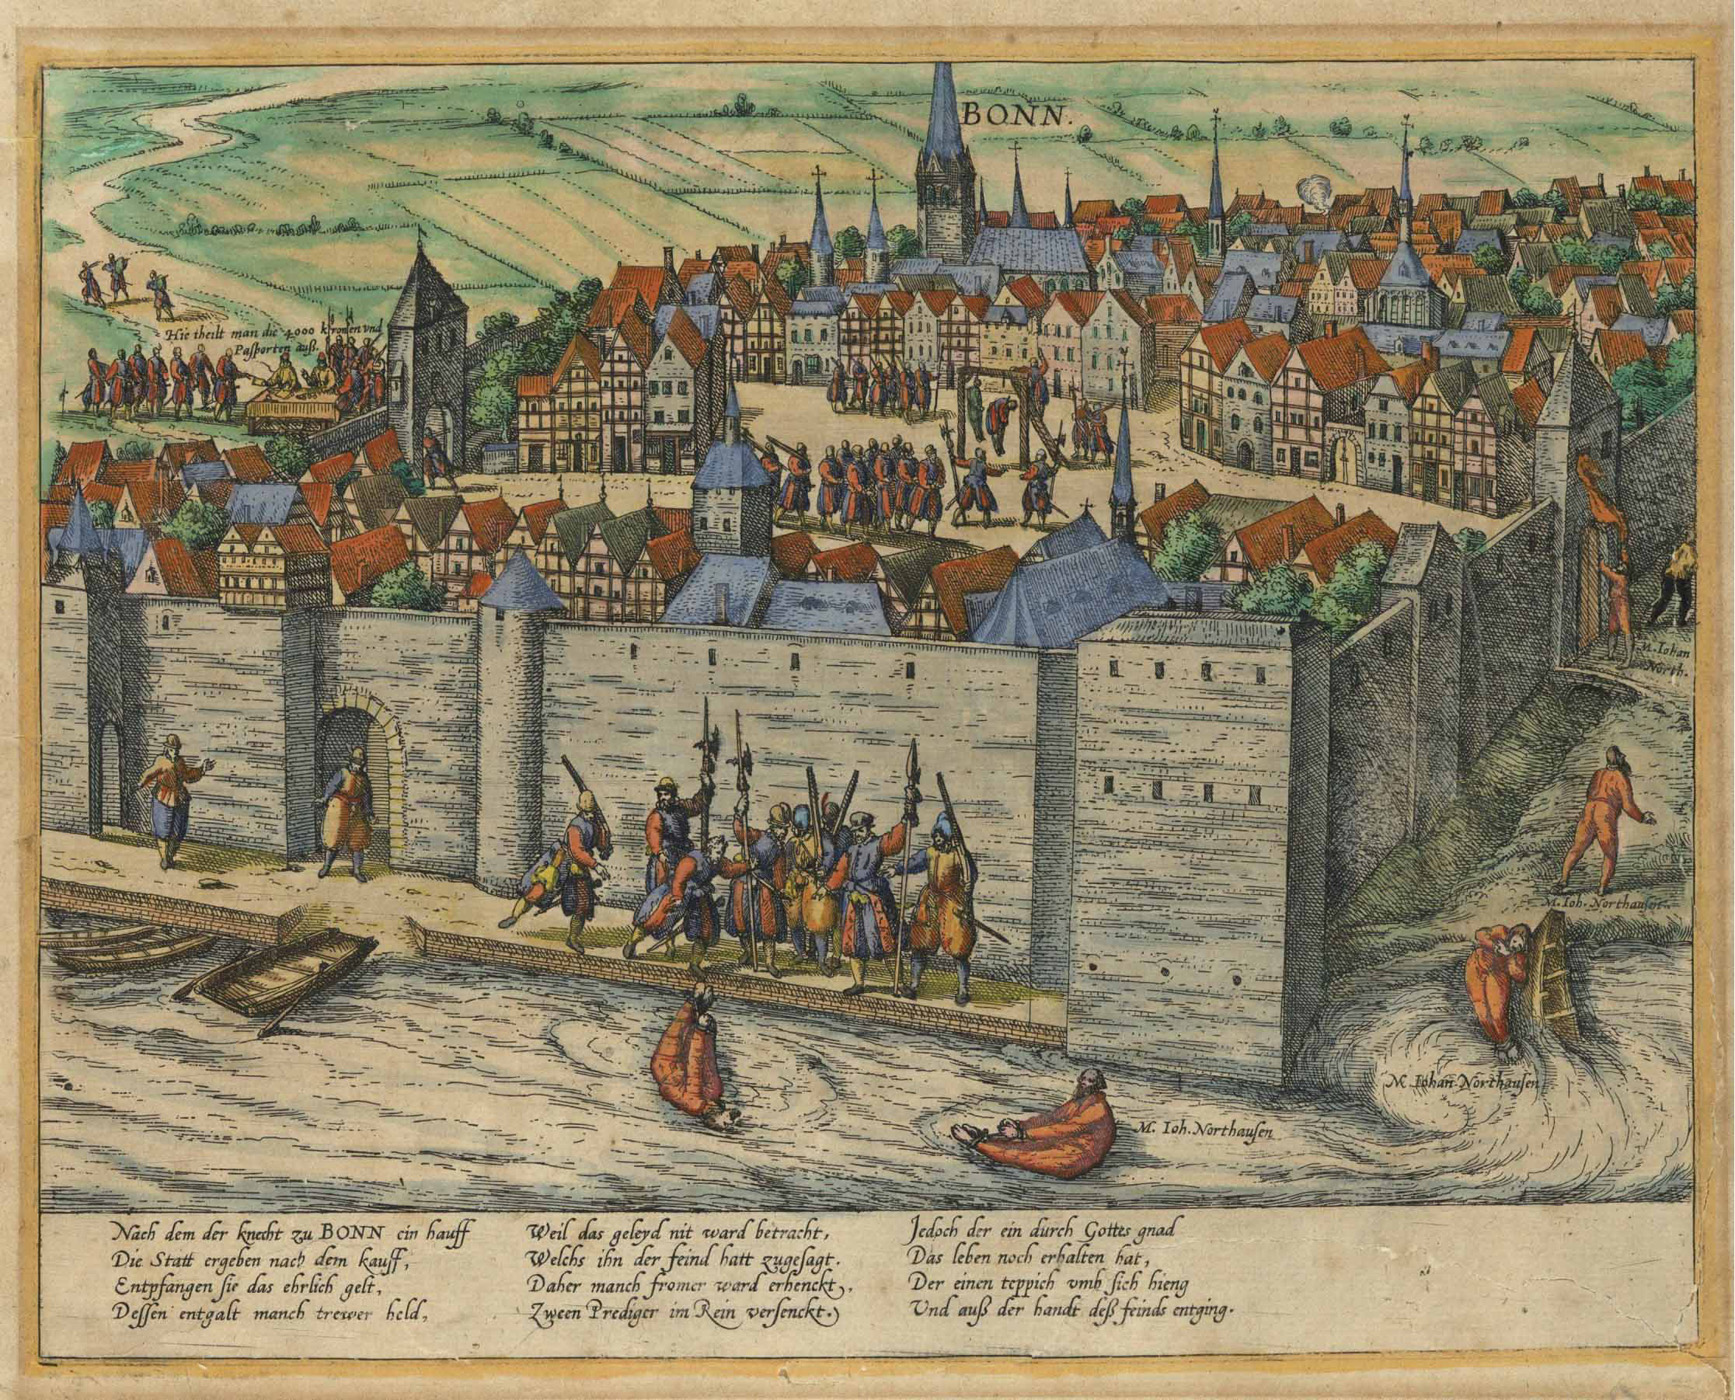 BONN.
Hie theilt man die 4000 kronen vnd
Paßporten auß.
M. Iohan
North.
M. Ioh. Northausen.
M. Iohan Northausen
M. Ioh. Northausen
Nach dem der knecht zu BONN ein hauff
Die Statt ergeben nach dem kauff,
Entpfangen sie das ehrlich gelt,
Dessen entgalt manch trewer held,
Weil das geleyd nit ward betracht,
Welchs ihn der feind hatt zugesagt.
Daher manch fromer ward erhenckt,
Zween Prediger im Rein versenckt.
Jedoch der ein durch Gottes gnad
Das leben noch erhalten hat,
Der einen teppich vmb sich hieng
Vnd auß der handt deß feinds entging.